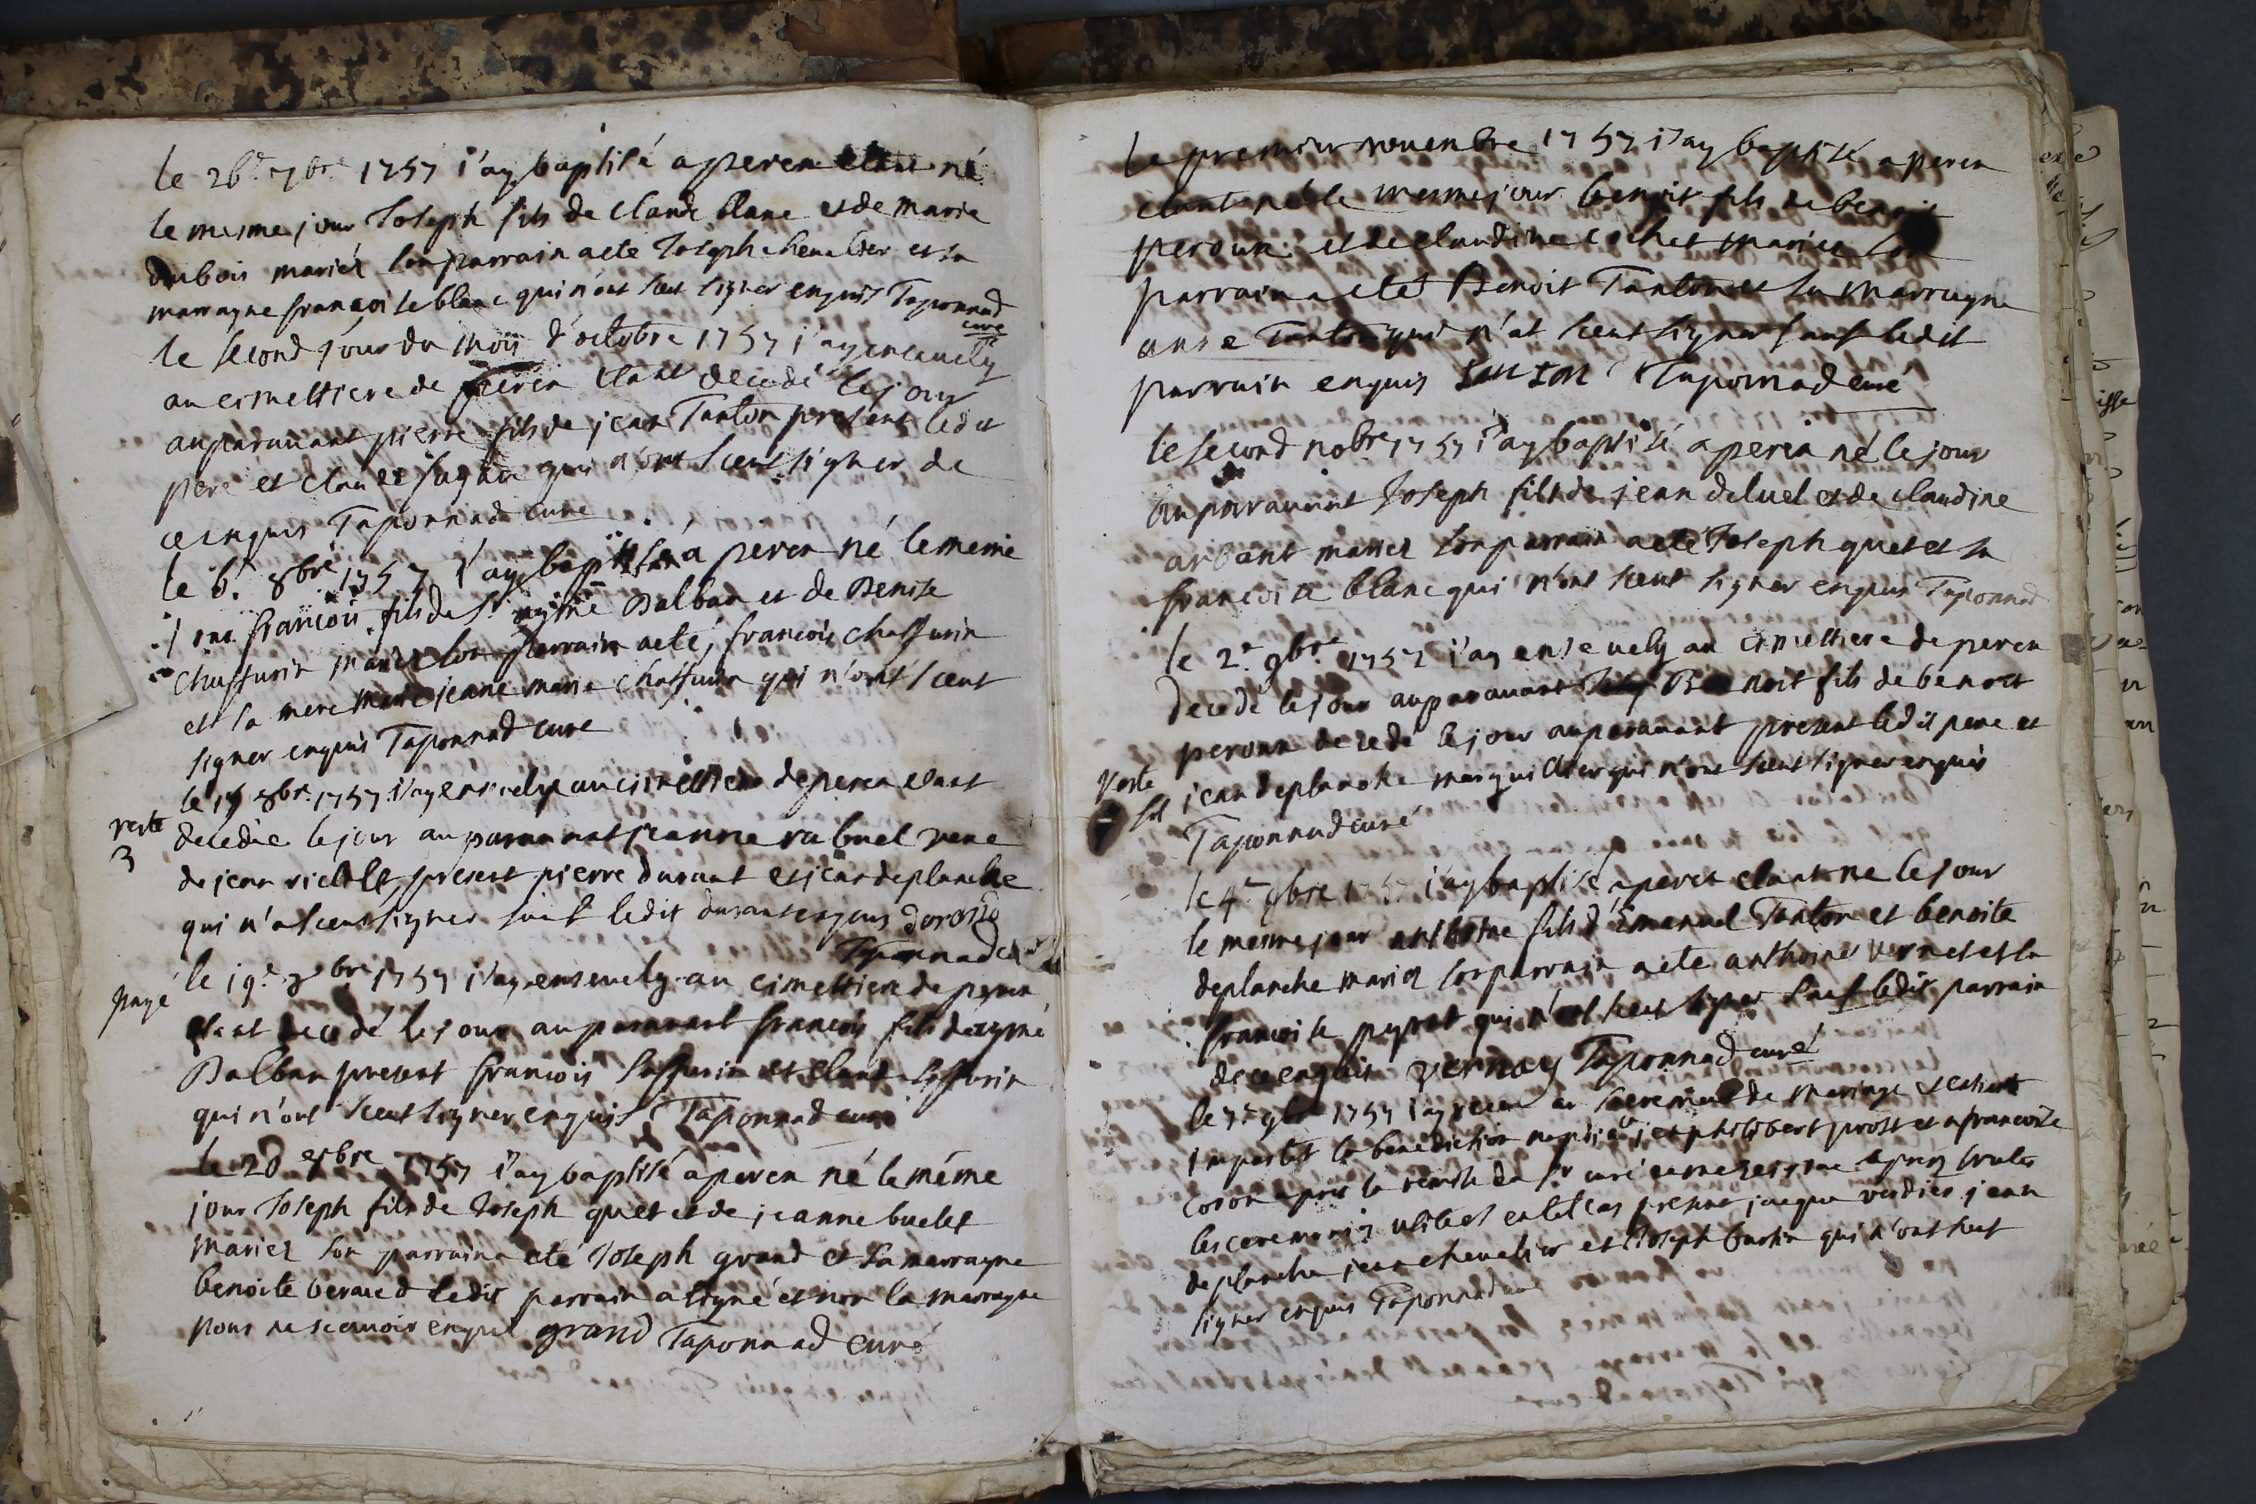 le 26e 7bre 1757 i'ay baptisé a peren etant né
le mesme jour Joseph fils de claude blanc et de marie
dubois mariéz son parrain a ete Joseph chevalier et sa
marrayne francoise blanc qui n'ont sceut signer enquis Taponnad
curé
le second jour du mois d'octobre 1757 j'ay enceuely
au cimettiere de peren etant decedé le jour
auparauant pierre fils de jean Tanton present ledit
pere et claude qui n'ont sceut signer de
ce enquis Taponnad cure
le 6. 8bre 1757 i'ay baptisé a peren né le meme
jour francois fils de aymé Balban et de Benite
chaffurin mariez son parrain a eté francois chaffurin
et sa mere jeanne marie chaffurin qui n'ont sceut
signer enquis Taponnad cure
le 8bre 1757 i'ay enseuely au cimettiere de peren etant
reste
3
decedée le jour auparauant jeanne rabuel veue
de jean present pierre durant et jean deplanche
qui n'at sceut signer sauf ledit durant enquis durand
Taponnad curé
payé
le 19e 8bre 1757 i'ay enseuely au cimettiere de peren
etant decedé le jour auparauant francois fils de aymé
Balban present francois saffurin et claude saffurin
qui n'ont sceut signer enquis Taponnad curé
le 28 8bre 1757 i'ay baptisé a peren né le même
jour Joseph fils de Joseph quet et de jeanne buelet
mariez son parrain a eté Joseph grand et sa marrayne
benoite beraud ledit parrain a signé et non la marrayne
pour ne scauoir enquis grand Taponnad curé
le premier nouembre 1757 i'ay baptisé a peren
etant né le mesme jour benoit fils de benoit
peroun et de claudine cochet mariez son
parrain a eté Benoit Tanton et sa marrayne
anne Tanton qui n'at sceut signer sauf ledit
parrain enquis Tanton Taponnad curé
le second nobre 1757 i'ay baptisé a peren né le jour
auparauant Joseph fils de jean deluel et de claudine
arbant mariez son parrain a eté Joseph quet et sa
francoise blanc qui n'ont sceut signer enquis Taponnad
le 2e 9bre 1757 i'ay enseuely au cimettiere de peren
decedé le jour auparauant Benoit fils de benoit
peroun decedé le jour auparauant present ledit pere et
reste
jean deplanche marguillier qui n'ont sceut signer enquis
Taponnad curé
le 4e 9bre 1757 i'ay baptisé a peren etant né le jour
le mesme jour anthoine fils d'Emanuel Tanton et benoite
deplanche mariez son parrain a ete anthoine vernet et sa
francoise peyrot qui n'at sceut signer sauf ledit parrain
de ce enquis vernay Taponnad curé
le 7e 9bre 1757 i'ay receu au sacrement de mariage et
impartit la benediction philibert prost et a francoise
coron apres la remise du sr curé apres toutes
les ceremonies usitées en tel cas present jacque verdier jean
deplanche jean cheualier et Joseph burtin qui n'ont sceut
signer enquis Taponnad curé